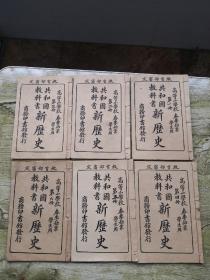 教育部審定
高等小學校
春季始業
學生用
共和國
教科書
新歷史
商務印書館發行
教育部審定
高等小學校
春季始業
學生用
共和國
教科書
新歷史
商務印書館發行
教育部審定
高等小學校
春季始業
學生用
共和國
教科書
新歷史
商務印書館發行
教育部審定
高等小學校
第六冊
春季始業
學生用
共和國
教科書
新歷史
商務印書館發行
教育部審定
高等小學校
春季始業
學生用
共和國
教科書
新歷史
商務印書館發行
教育部審定
高等小學校
第四冊
春季始業
學生用
共和國
教科書
新歷史
商務印書館發行